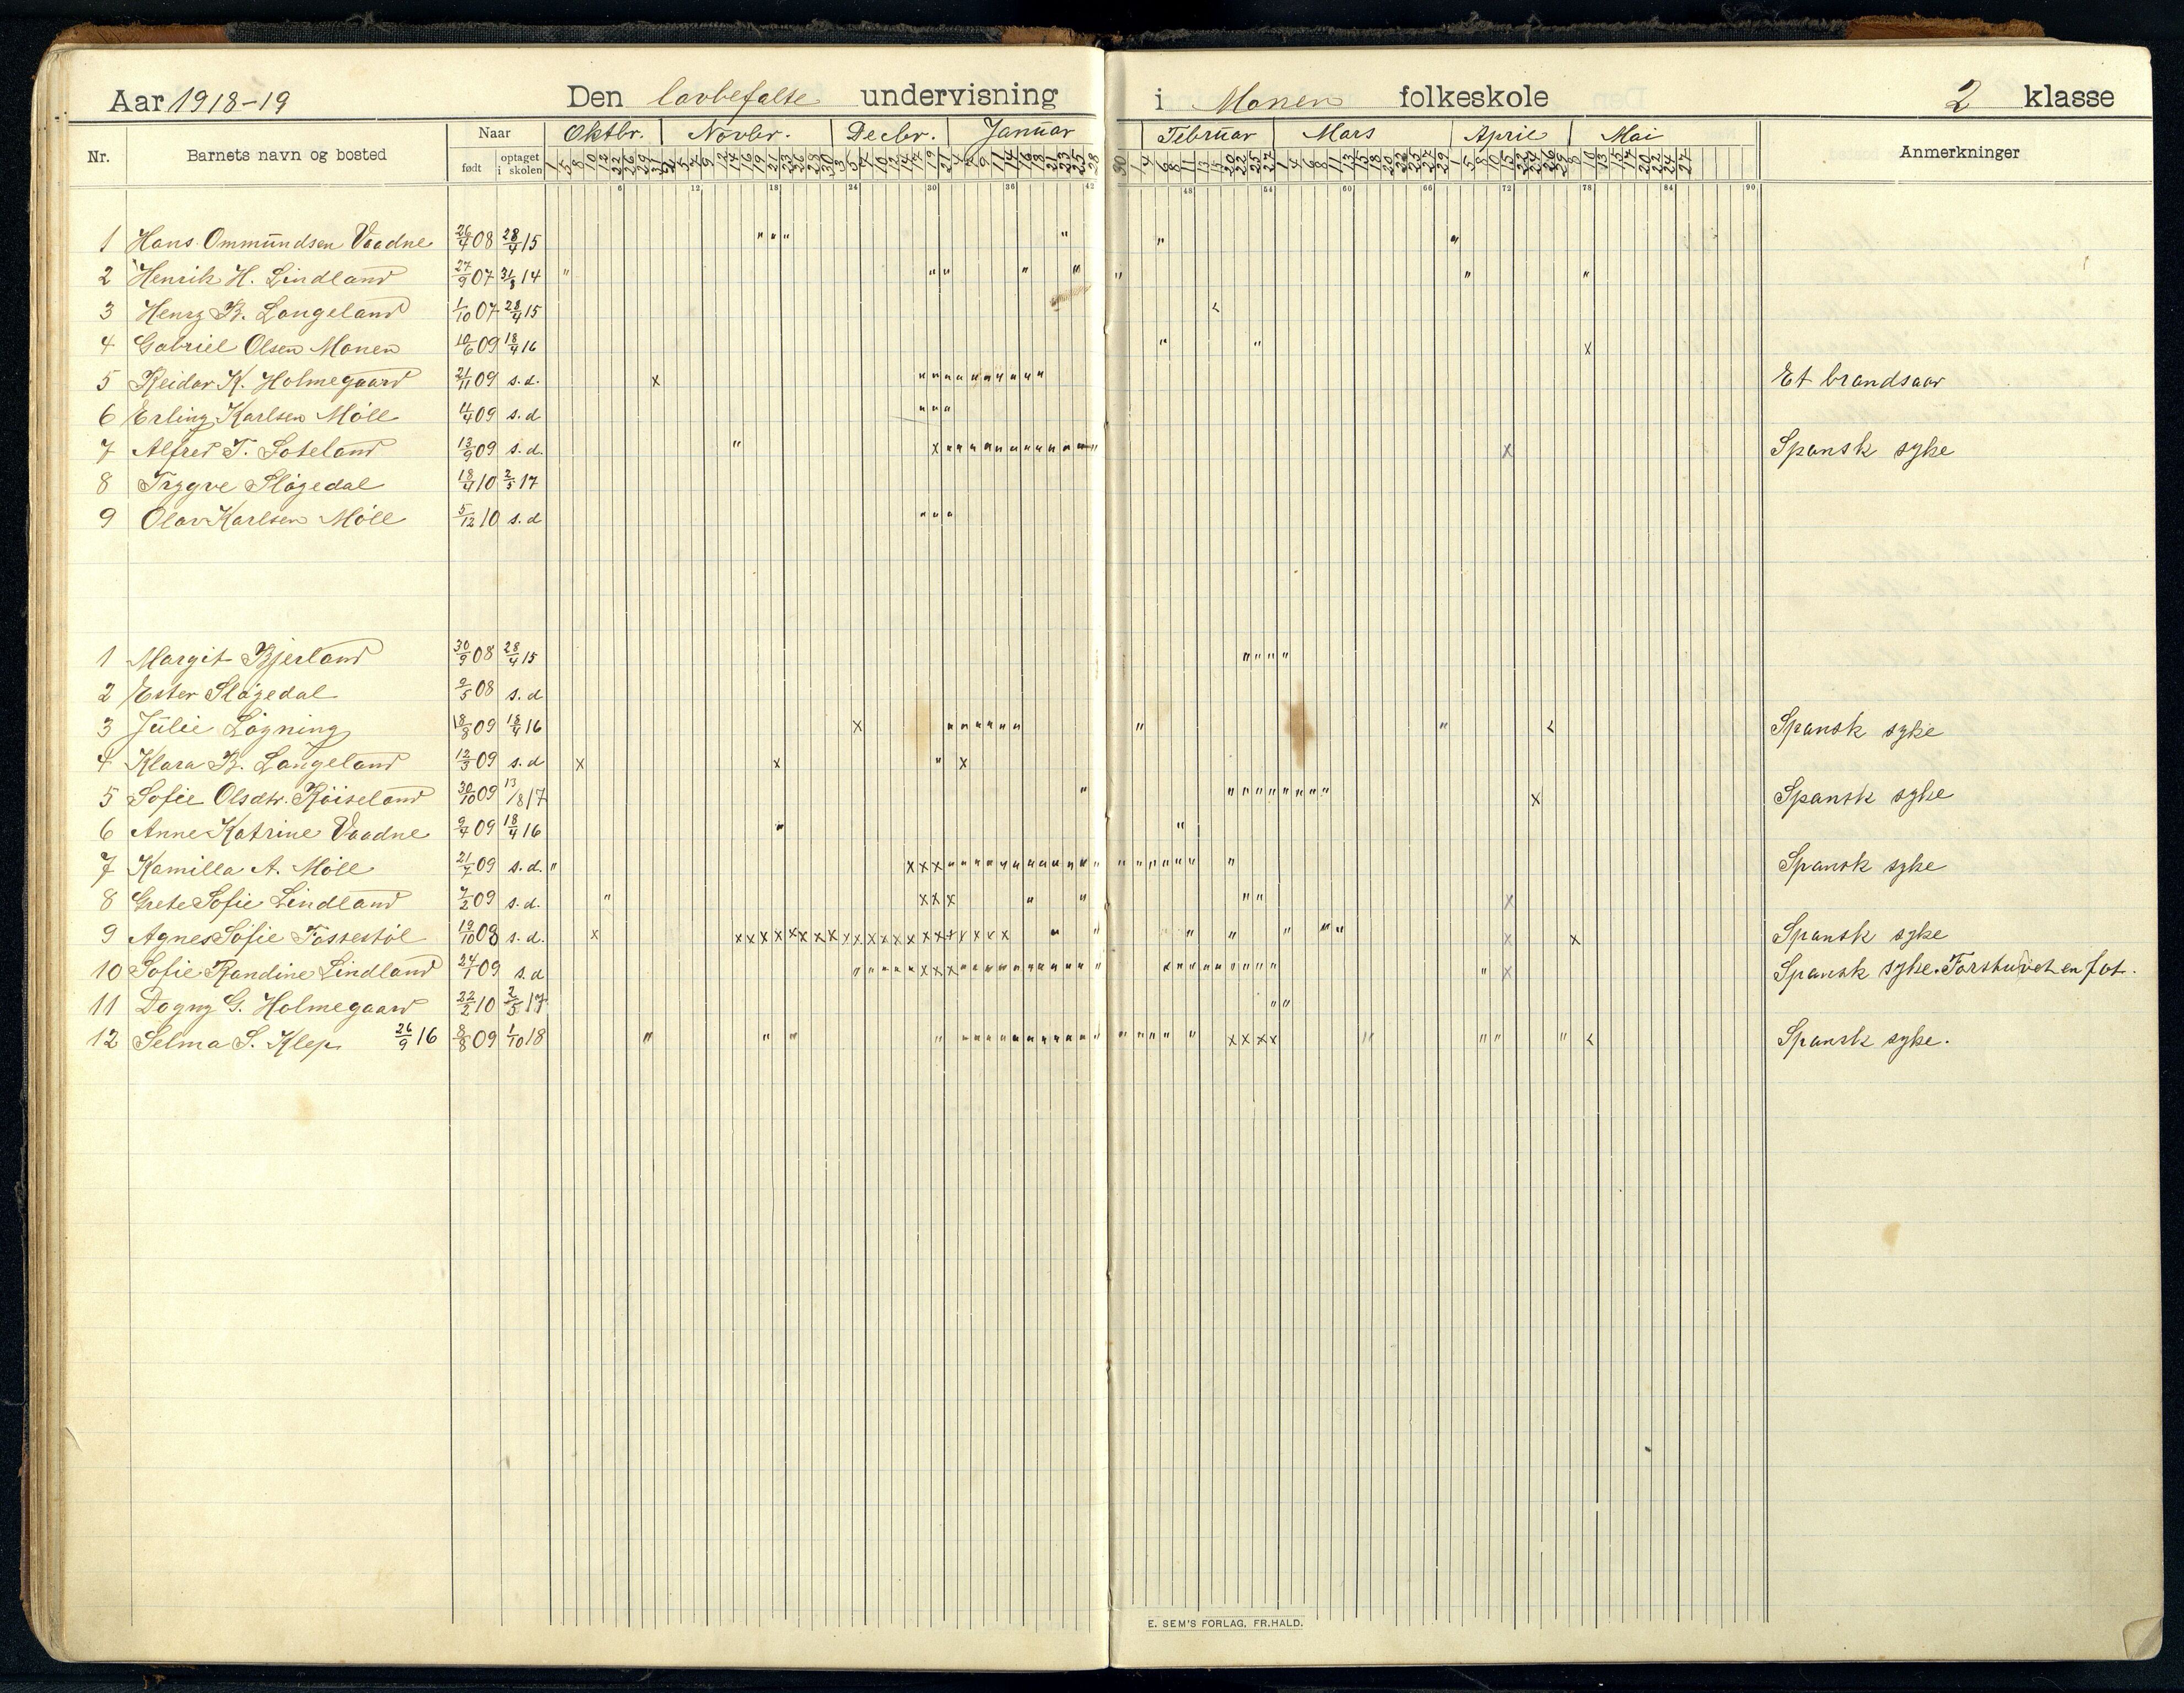 Aar 1918-19 Den lovbefalte undervisning i Monen folkeskole 2 klasse
Nr. Barnets navn og bosted Naar Oktbr. Novbr. Decbr. Januar Februar Mars April Mai Anmerkninger
født optaget i skolen
6 12 18 24 30 36 42 48 54 60 66 72 78 84 90
1 Hans Ommundsen Vaadne 26/4 08 28/4 15
2 Henrik H. Lindland 27/9 07 31/8 14
3 Henry B. Langeland 1/10 07 28/4 15
4 Gabriel Olsen Monen 10/6 09 18/4 16
5 Reidar K. Holmegaard 21/11 09 s.d. Et brandsaar
6 Erling Karlsen Möll 4/4 09 s.d
7 Alfred T. Loteland 13/9 09 s.d. Spansk syke
8 Trygve Slögedal 18/4 10 2/5 17
9 Olav Karlsen Möll 5/12 10 s.d
1 Margit Bjerland 30/9 08 28/4 15
2 Ester Slögedal 9/5 08 s.d
3 Julie Lögning 18/8 09 18/4 16 Spansk syke
4 Klara B. Langeland 12/3 09 s.d
5 Sofie Olsdtr. Röiseland 30/10 09 13/8 17 Spansk syke
6 Anne Katrine Vaadne 9/4 09 18/4 16
7 Kamilla A. Möll 21/4 09 s.d. Spansk syke
8 Grete Sofie Lindland 7/2 09 s.d.
9 Agnes Sofie Fossestöl 19/10 08 s.d. Spansk syke
10 Sofie Randine Lindland 24/1 09 s.d Spansk syke. Forstuvet en fot.
11 Dagny G. Holmegaard 22/2 10 2/5 17
12 Selma S. Klep 26/9 16 8/8 09 1/10 18 Spansk syke.
E. SEM'S FORLAG, FR.HALD.